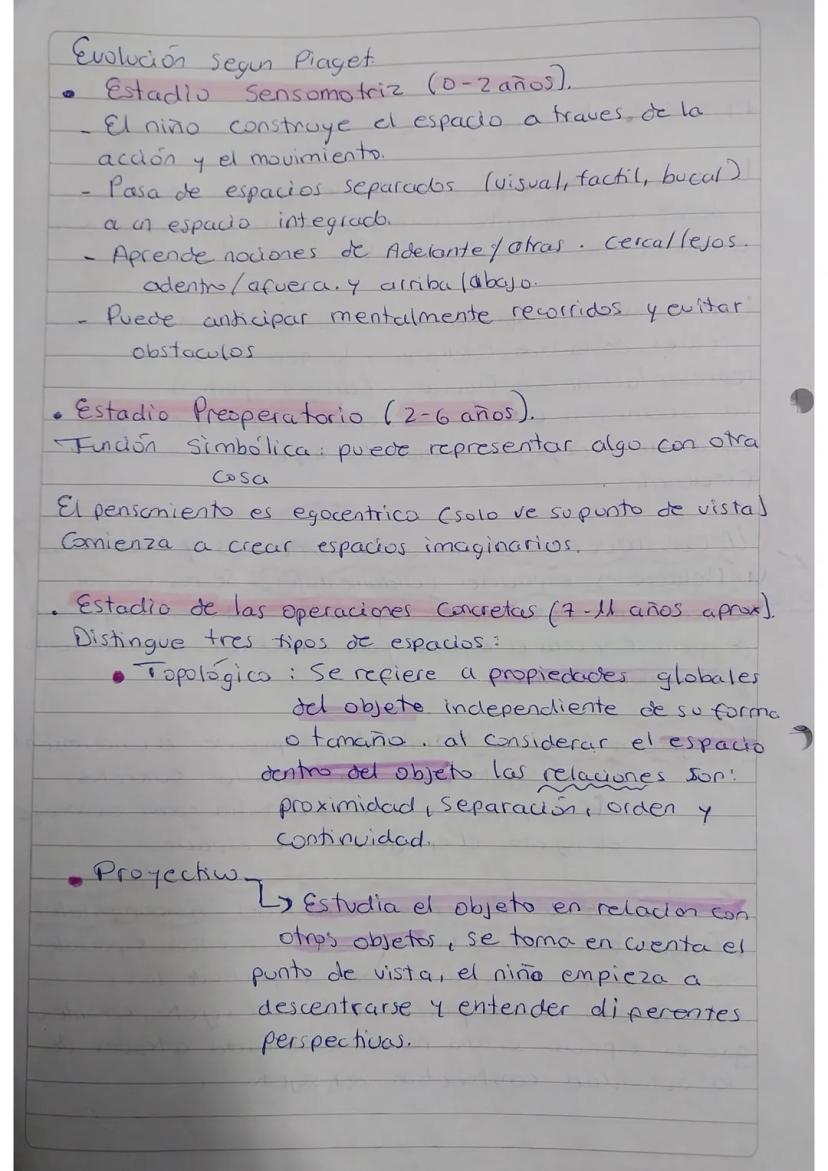 Evolución segun Piaget
• Estadio Sensomotriz (0-2 años).
- El niño construye el espacio a traves de la
acción y el movimiento.
- Pasa de espacios separados (visual, tactil, bucal)
a un espacio integrado.
- Aprende nociones de Adelante/atras. cerca/lejos.
adentro/afuera. y arriba/abajo.
- Puede anticipar mentalmente recorridos y evitar
obstaculos
• Estadio Preoperatorio (2-6 años).
- Función Simbólica: puede representar algo con otra
cosa
El pensamiento es egocentrico (solo ve su punto de vista)
Comienza a crear espacios imaginarios.
• Estadio de las operaciones Concretas (7-11 años aprox).
Distingue tres tipos de espacios:
• Topológico: Se refiere a propiedades globales
del objeto independiente de su forma
o tamaño. al considerar el espacio
dentro del objeto las relaciones son:
proximidad, separación, orden y
continuidad.
• Proyectivo
↳ Estudia el objeto en relacion con
otros objetos, se toma en cuenta el
punto de vista, el niño empieza a
descentrarse y entender diferentes
perspectivas.